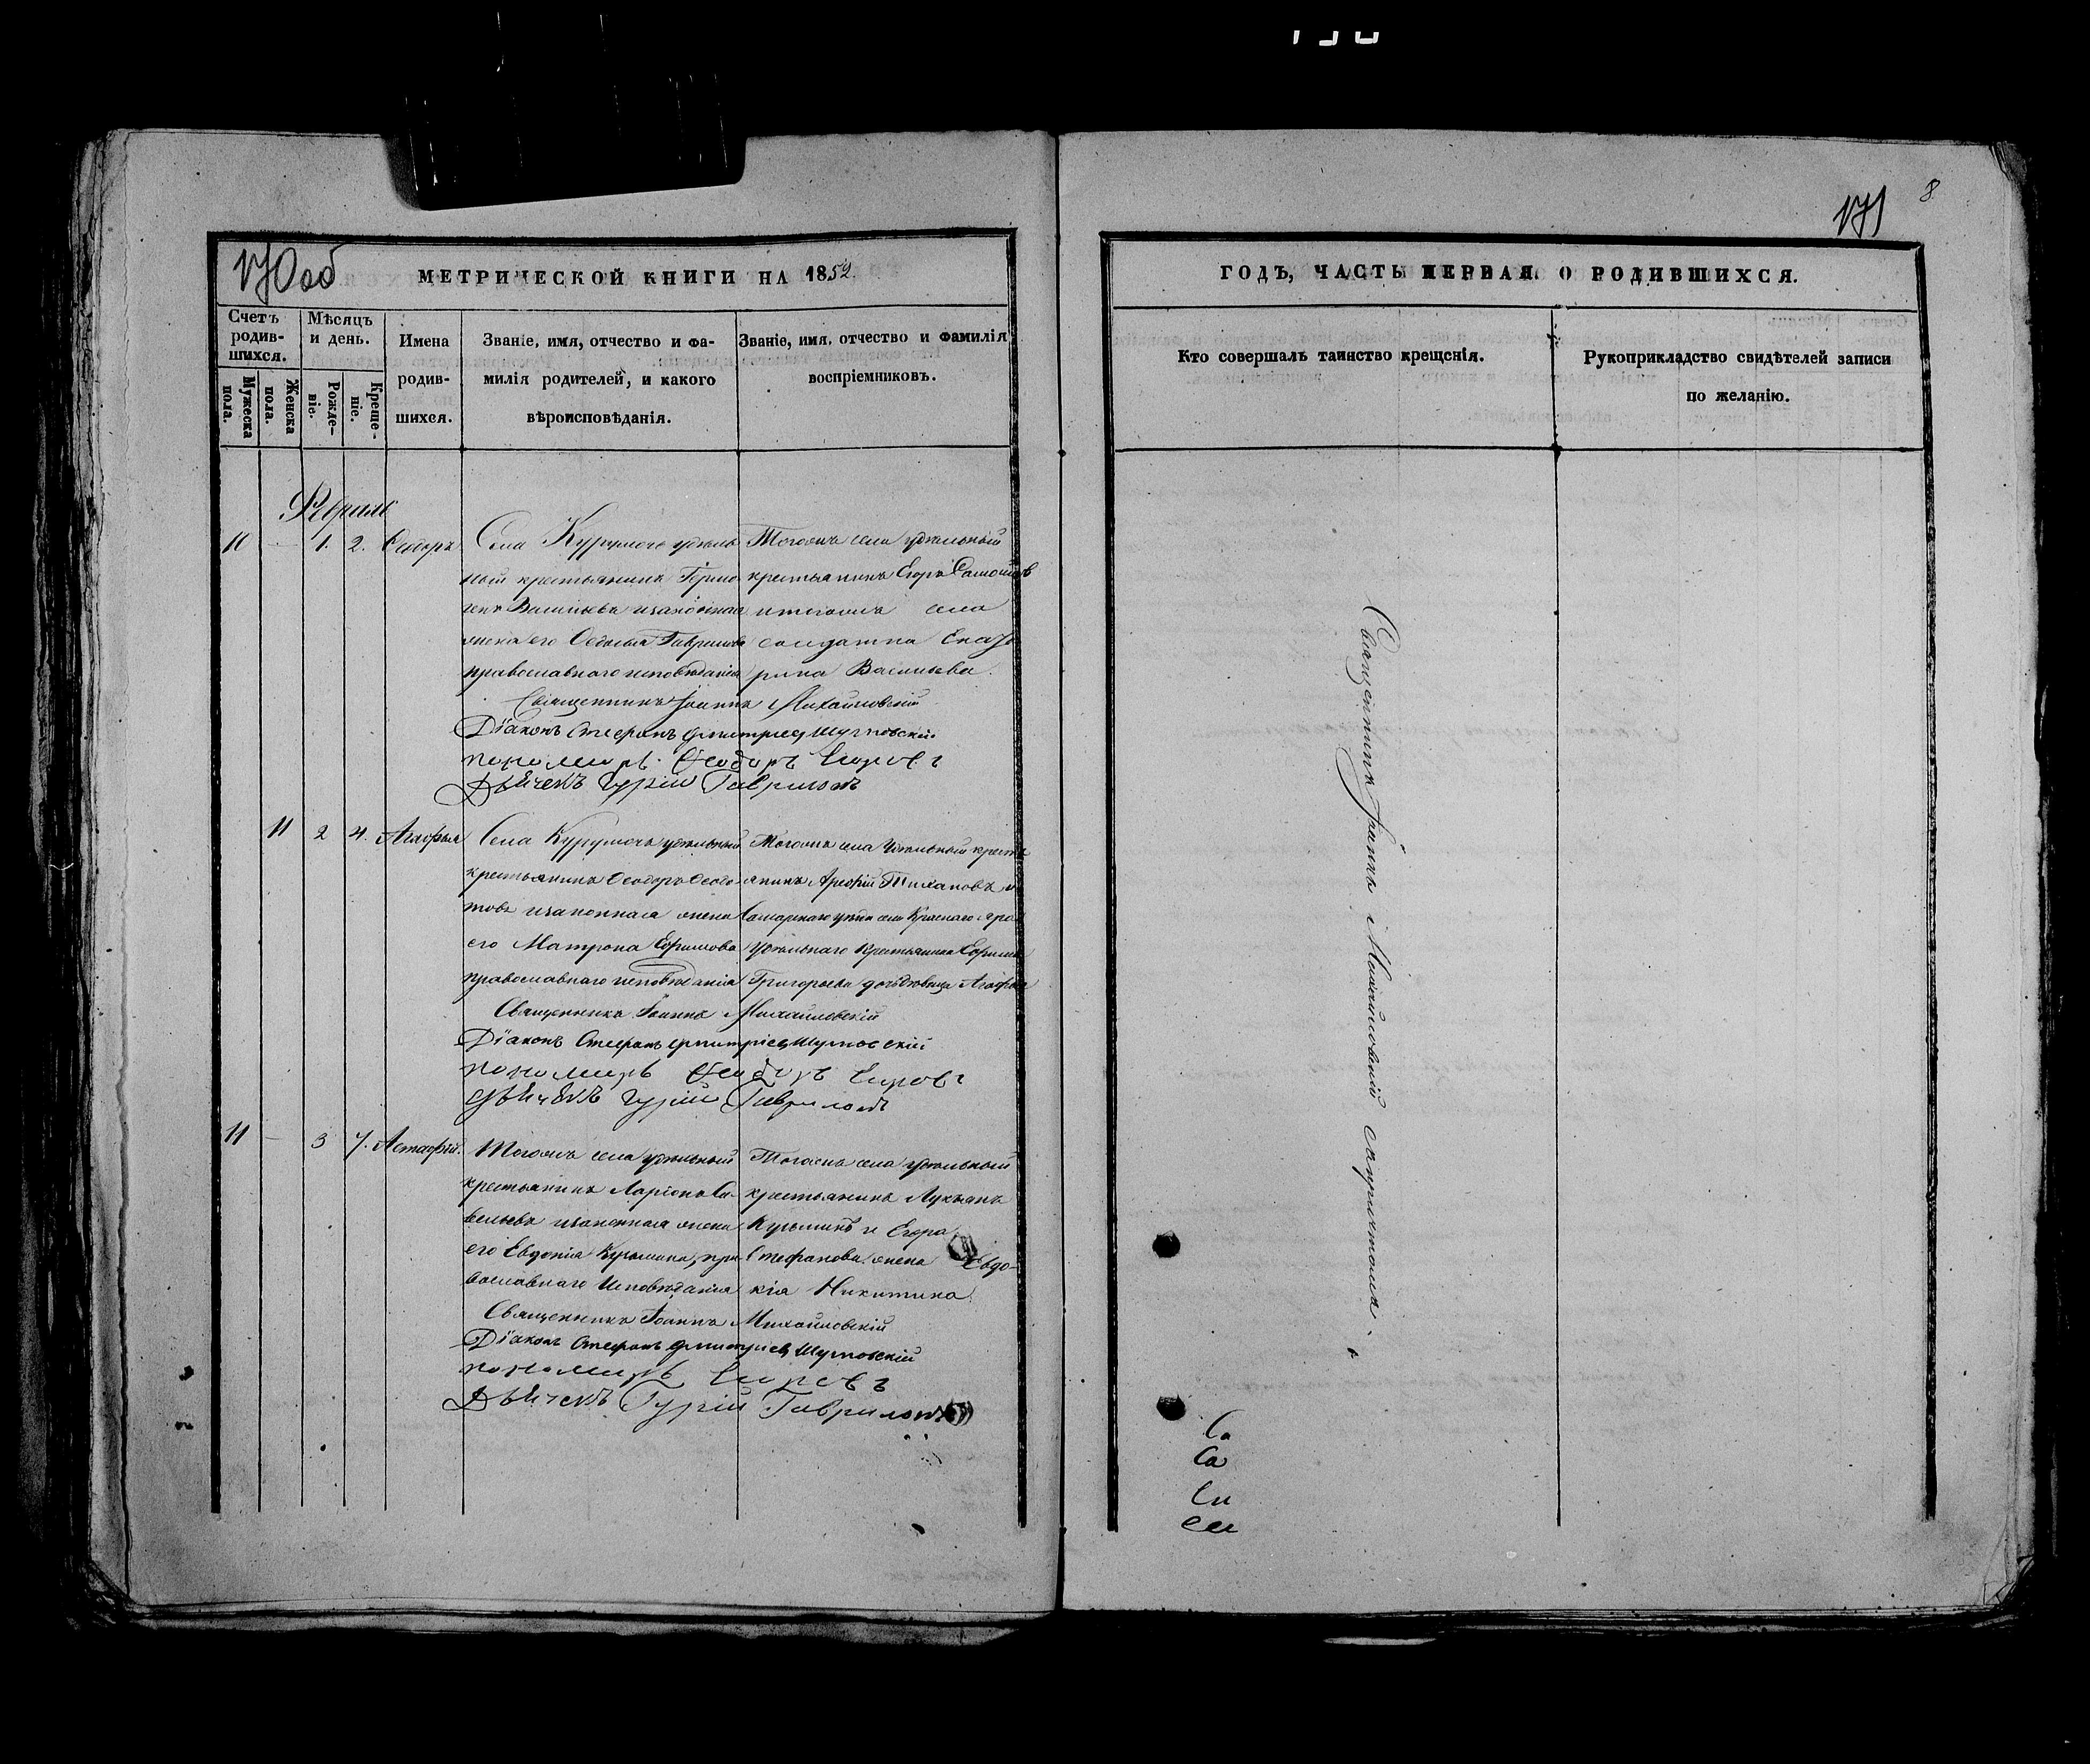 170об
МЕТРИЧЕСКОЙ КНИГИ НА 1852.
Счетъ родив-шихся.
Мѣсяцъ и день.
Мужеска пола.
Женска пола.
Рожде-ніе.
Креще-ніе.
Имена родив-шихся.
Званіе, имя, отчество и фа-
милія родителей, и какого
вѣроисповѣданія.
Званіе, имя, отчество и фамилія
воспріемниковъ.
Февраль
10 — 1. 2. Ѳеодоръ
Села Курумоча удѣль
ный крестьянинъ Гермо
генъ Васильевъ изаконная
жена его Ѳедосья Гаврилова
православнаго исповѣданія
Тогожъ села удѣльный
крестьянинъ Егоръ
итогожъ села
солдатка Екате
рина Васильева.
Священникъ Іоаннъ Михайловскій
Діаконъ Стефанъ Дмитріевъ
пономарь Ѳеодоръ Егоровъ
Дьячекъ Гурій Гавриловъ
11 2 4. Агафья
Села Курумоча удѣльный
крестьянинъ Ѳеодоръ Ѳедо
товъ изаконная жена
его Матрона Ефимова
православнаго исповѣданія
Тогожъ села Удѣльный кресть
янинъ Арефій Тихановъ и
Самарскаго уѣзда села Краснаго яра
Удѣльнаго Крестьянина Ефима
Григорьева дочь дѣвица Агафья
Священникъ Іоаннъ Михайловскій
Діаконъ Стефанъ Дмитріевъ
пономарь Ѳеодоръ Егоровъ
Дьячекъ Гурій Гавриловъ
11 — 3 7. Астафій.
Тогожъ села удѣльный
крестьянинъ Ларіонъ Са-
вельевъ изаконная жена
его Евдокія Кузьмина, пра
вославнаго Исповѣданія
Тогожъ села удѣльный
крестьянинъ Лукьянъ
Кузьминъ и Егора
Стефанова жена Евдо-
кія Никитина.
Священникъ Іоаннъ Михайловскій
Діаконъ Стефанъ Дмитріевъ
пономарь Егоровъ
Дьячекъ Гурій Гавриловъ
171
8
ГОДЪ, ЧАСТЬ ПЕРВАЯ. О РОДИВШИХСЯ.
Кто совершалъ таинство крещенія.
Рукоприкладство свидѣтелей записи
по желанію.
Священникъ Іоаннъ Михайловскій спричтомъ.